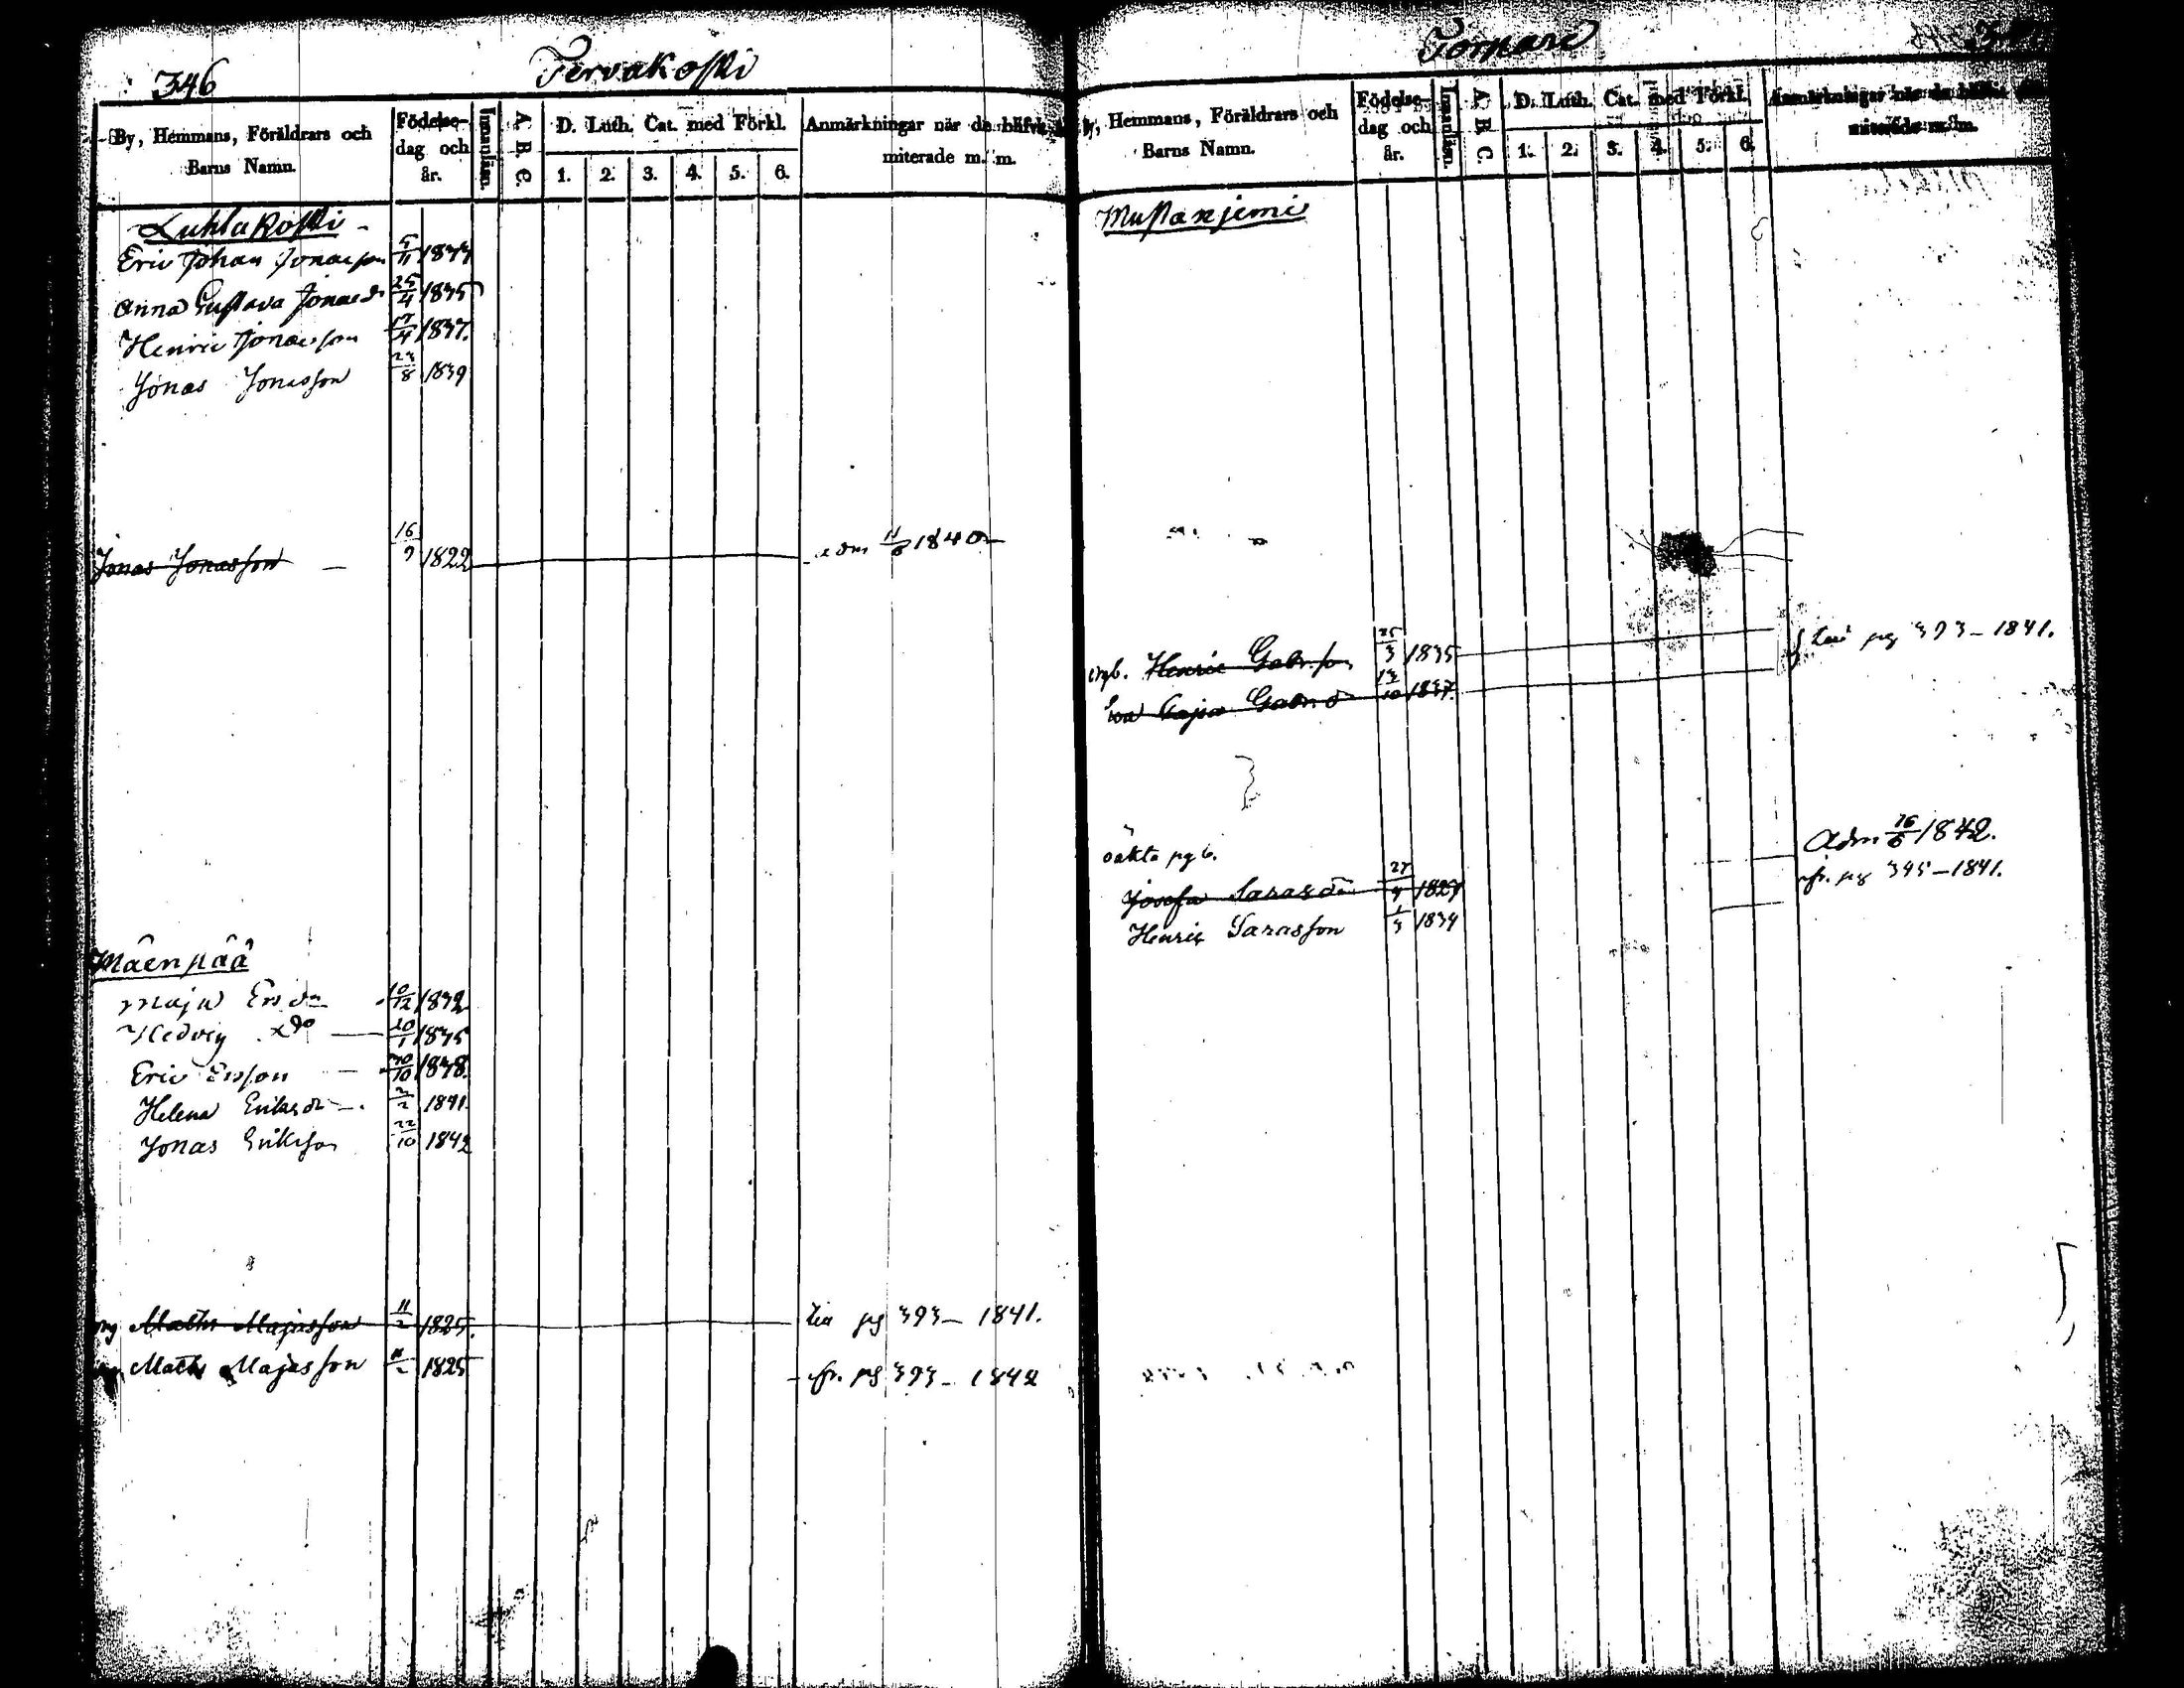 346
Tervakoski
By, Hemmans, Föräldrars och Barns Namn.
Födelse-dag och år.
Innanläsn.
A. B. C.
D. Luth. Cat. med Förkl.
1. 2. 3. 4. 5. 6.
Anmärkningar när de
miterade m. m.
Luhtakoski
Eric Johan Jonasson 5/11 1833
Anna Gustava Jonasd 25/4 1835
Henric Jonasson 17/4 1837.
Jonas Jonasson 23/8 1839
Jonas Jonasson 16/9 1822 adm 11/6 1840
Mäenpää
Maja Ersdr 10/12 1832
Hedvig do 20/1 1835
Eric Ersson 30/10 1838.
Helena Eriksdr 2/2 1841.
Jonas Eriksson 22/10 1842
Matts Majasson 11/2 1825. pg 393 - 1841.
Matts Majasson 11/2 1825 fr. pg 393 - 1842
Tomare
Hemmans, Föräldrars och
Barns Namn.
Födelse-
dag och
år.
Innanläsn.
A. B. C
D. Luth. Cat. med Förkl.
1. 2. 3. 4. 5. 6.
Anmärkningar när de
miterade m. m.
Mustaniemi
Henric Gabr.son 25/3 1835 pg 393 - 1841.
Cajsa Gabrsd 13/10 1837.
oäkta pg 6.
Adm 16/6 1842.
Josefa Sarasdr 27/4 1827 fr. pg 395 - 1841.
Henric Sarasson 1/3 1839